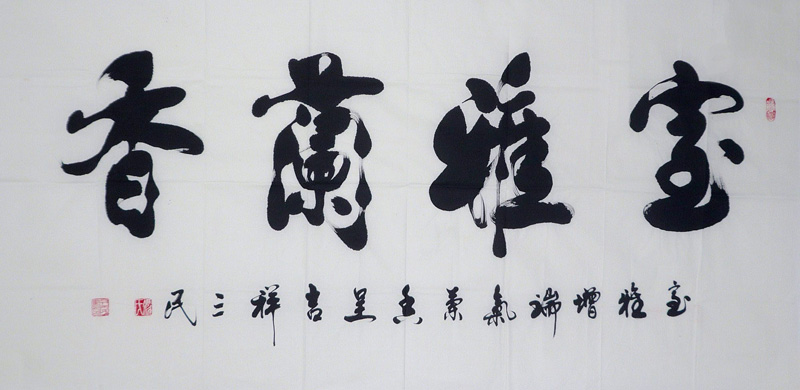 室雅蘭香
室雅增端氣蘭香呈吉祥三民